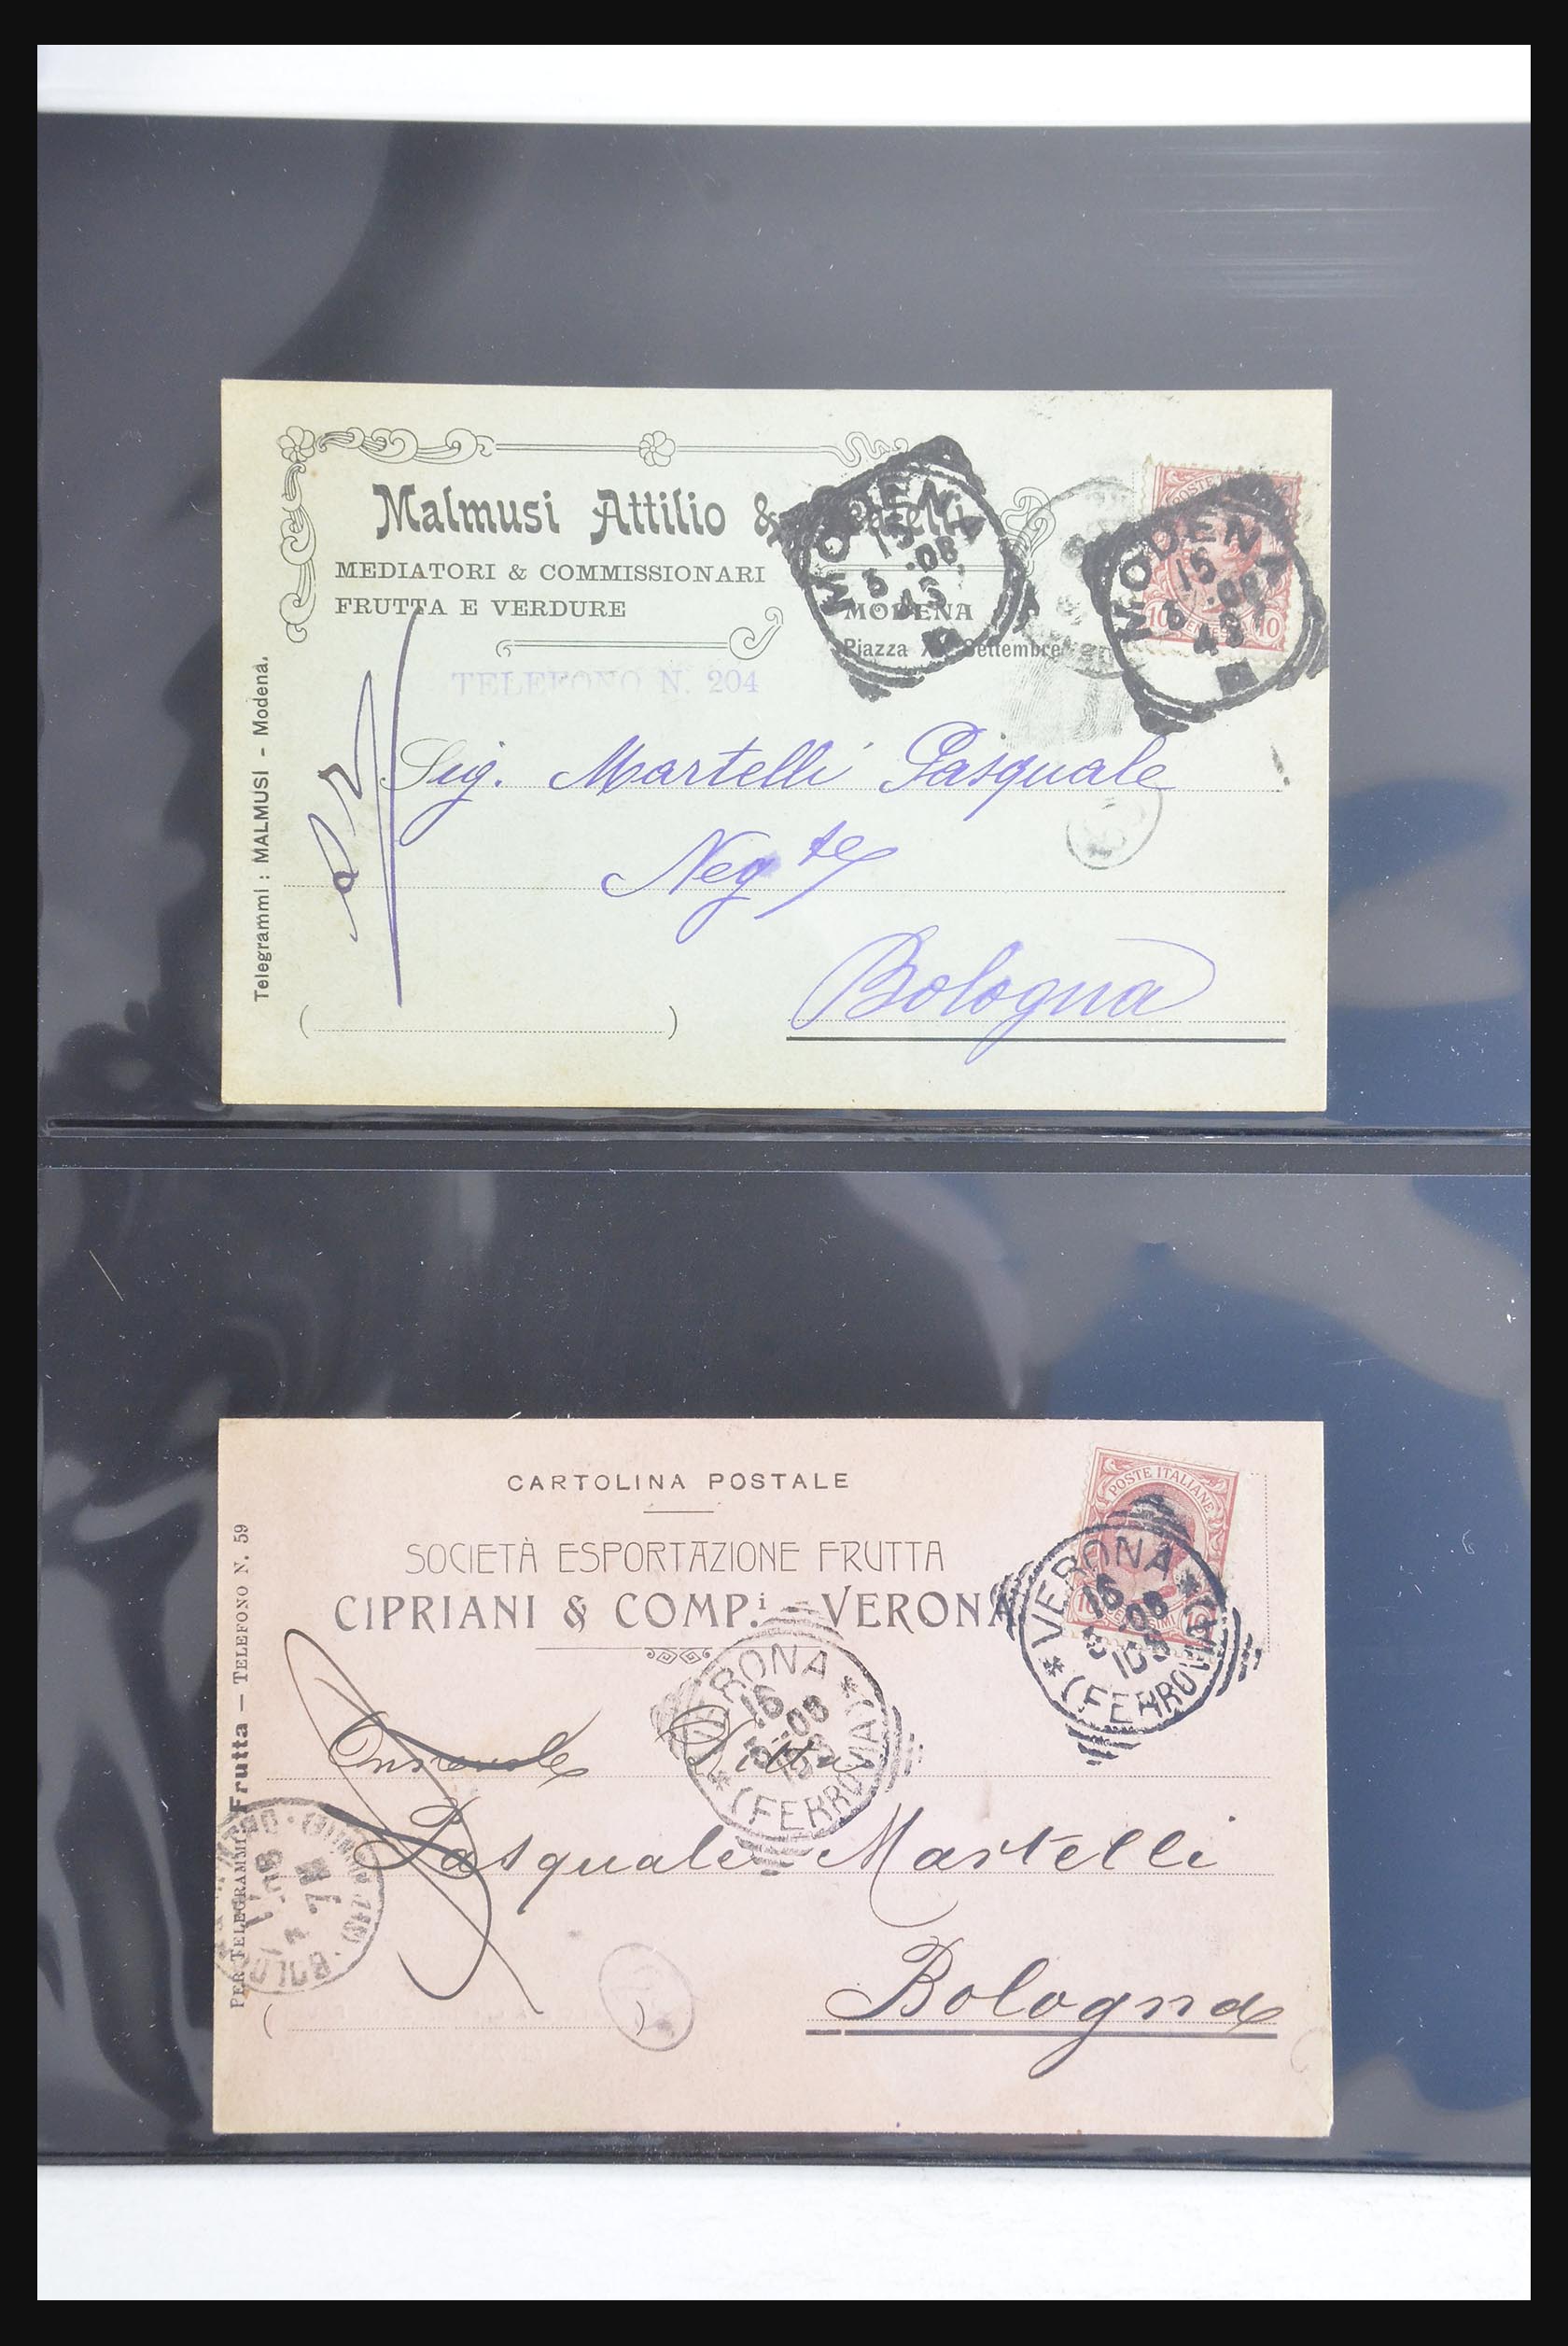 Malmusi Attilio & Fratelli
MEDIATORI & COMMISSIONARI
FRUTTA E VERDURE
MODENA
Piazza XX Settembre
TELEFONO N. 204
MODENA
15
5 .08
4S
MODENA
15
5 .08
4S
POSTE
10 10
Telegrammi : MALMUSI - Modena.
Sig. Martelli Pasquale
Neg te
Bologna
( )
CARTOLINA POSTALE
SOCIETÀ ESPORTAZIONE FRUTTA
CIPRIANI & COMP.i - VERONA
POSTE ITALIANE
VERONA
16
5 -08
10S
(FERROVIA)
VERONA
16
5-08
10S
(FERROVIA)
PER TELEGRAMMI: Frutta — TELEFONO N. 59
Onorevole Ditta
Pasquale Martelli
Bologna
( )